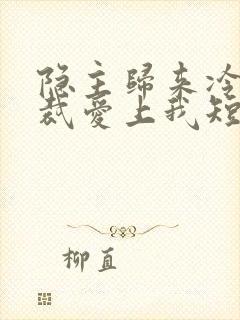 隐主归来冷
裁爱上我短
柳直